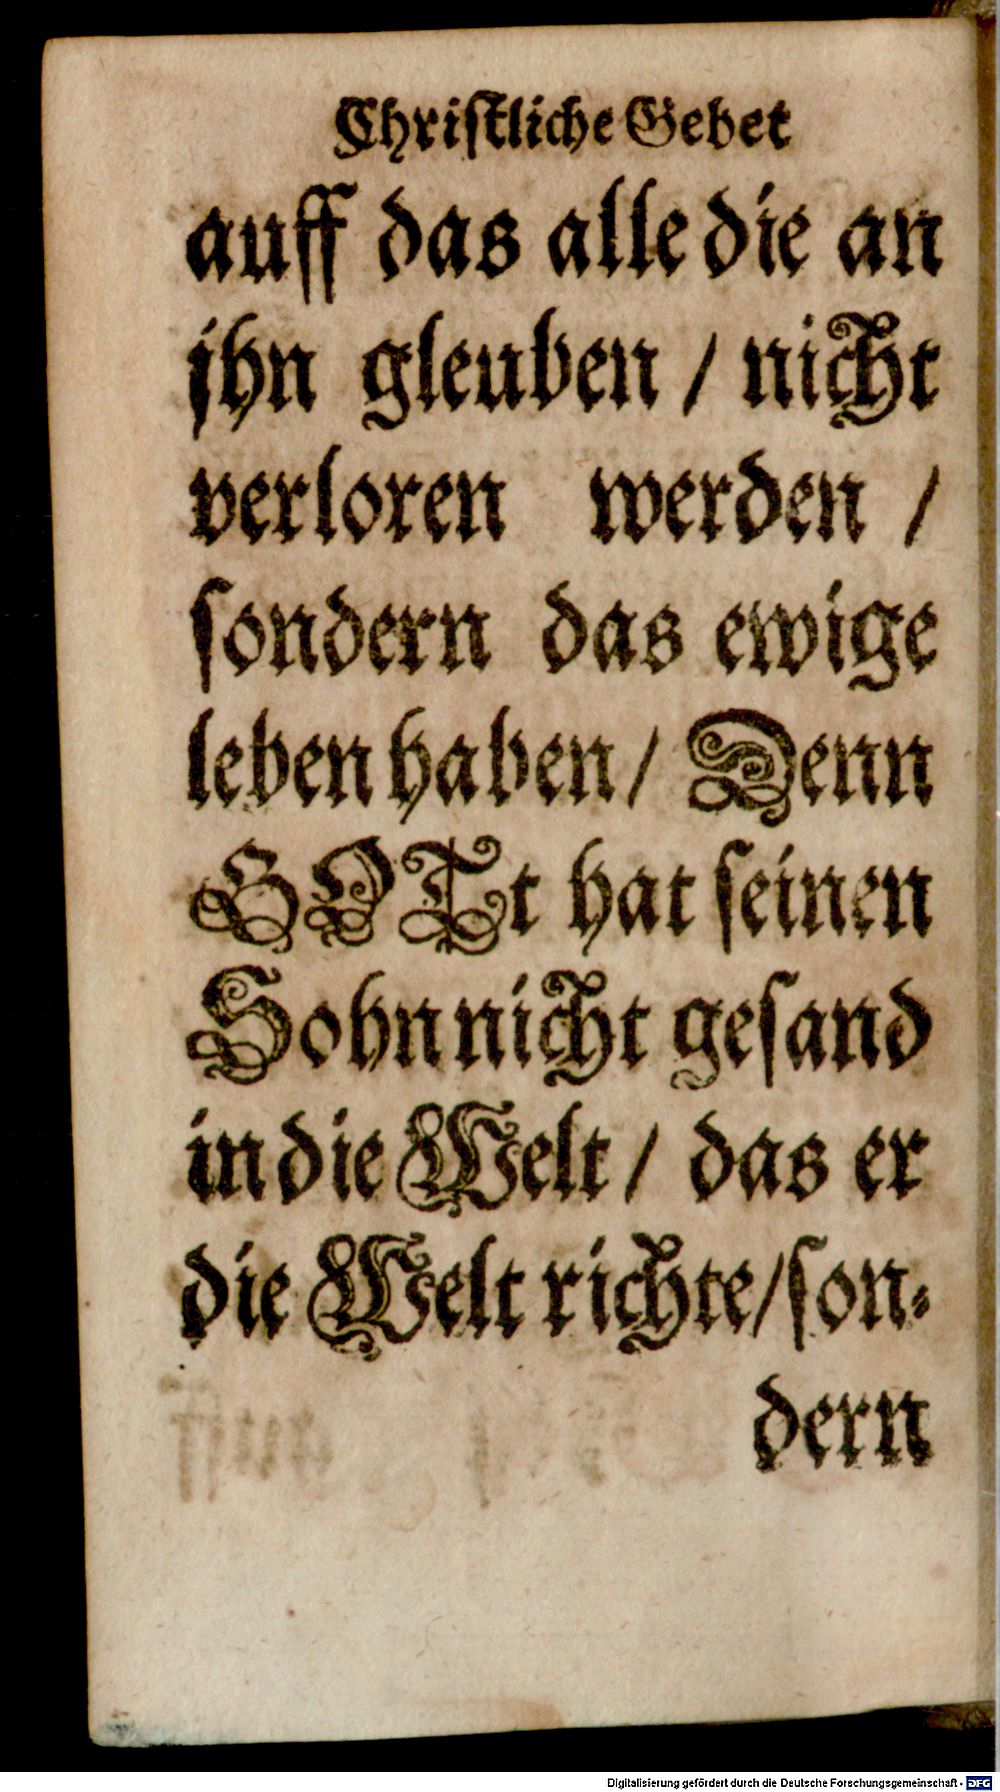 Chriſtliche Gebet
auff das alle die an
jhn gleuben / nicht
verloren werden /
ſondern das ewige
leben haben / Denn
GOTt hat ſeinen
Sohn nicht geſand
in die Welt / das er
die Welt richte / ſon⸗
dern
Digitalisierung gefördert durch die Deutsche Forschungsgemeinschaft - DFG